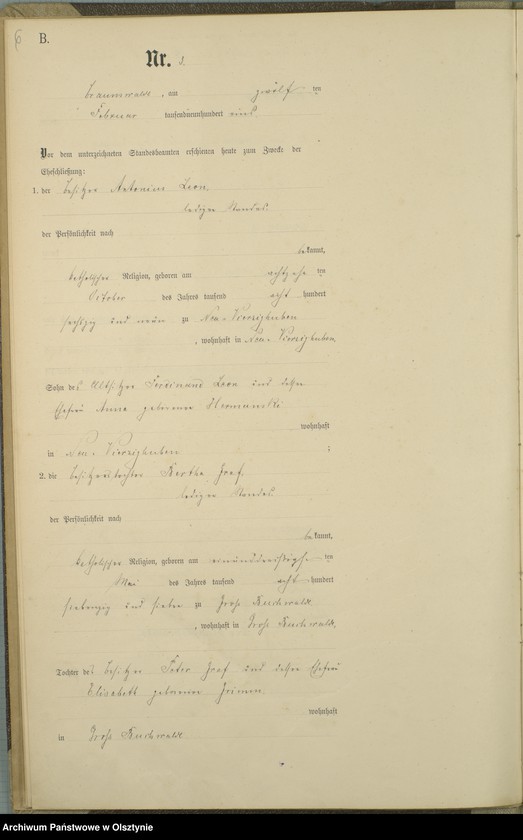 B.
Nr. 2
Braunswalde, am zwölften
Februar tausendneunhundert eins
Vor dem unterzeichneten Standesbeamten erschienen heute zum Zwecke der
Eheschließung:
1. der Besitzer Antonius Leon,
ledigen Standes
der Persönlichkeit nach
bekannt,
katholischer Religion, geboren am achtzehnten
October des Jahres tausend acht hundert
sechzig und neun zu Neu-Vierzighuben
, wohnhaft in Neu-Vierzighuben,
Sohn des Altsitzer Ferdinand Leon und dessen
Ehefrau Anna geborener
wohnhaft
in Neu-Vierzighuben ;
2. die Besitzertochter Bertha Graf
ledigen Standes
der Persönlichkeit nach
bekannt,
katholischer Religion, geboren am einunddreißigsten
Mai des Jahres tausend acht hundert
siebenzig und sieben zu Groß Buchwalde
, wohnhaft in Groß Buchwalde,
Tochter des Besitzer Peter Graf und dessen Ehefrau
Elisabeth geborener
wohnhaft
in Groß Buchwalde
Archiwum Państwowe w Olsztynie